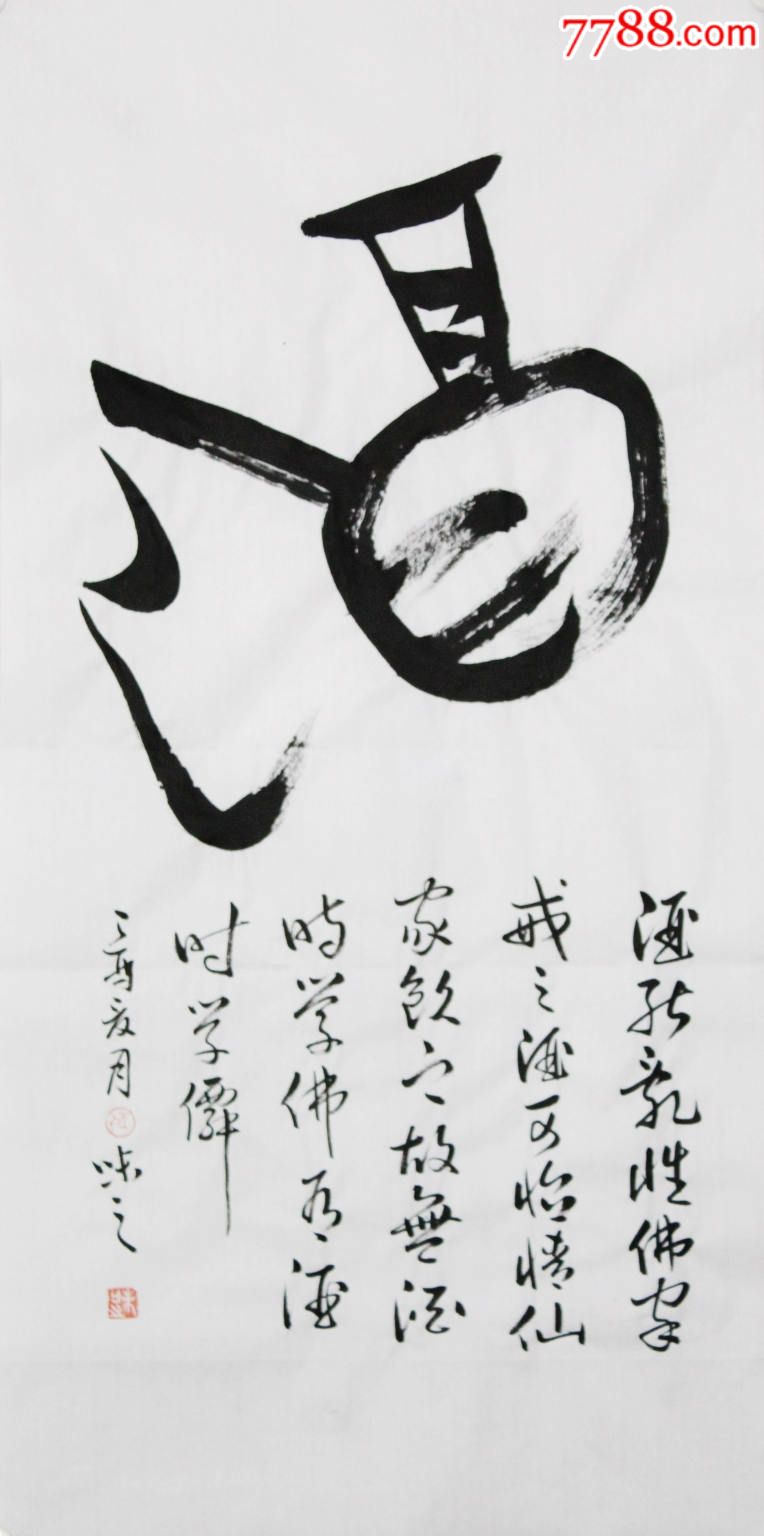 7788.com
酒
酒能乱性佛家
戒之酒可怡情仙
家飲之故無酒
時学佛有酒
时学僊
夏月
味之